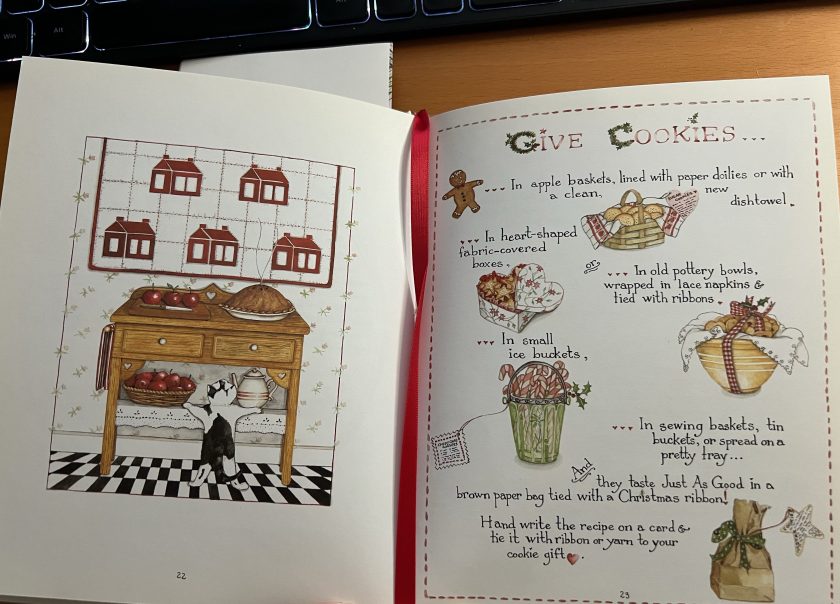 Win
Alt
22
GIVE COOKIES...
... In apple baskets, lined with paper doilies or with
a clean, new
dishtowel.
... In heart-shaped
fabric-covered
boxes.
or
... In old pottery bowls,
wrapped in lace napkins &
tied with ribbons.
... In small
ice buckets,
... In sewing baskets, tin
buckets, or spread on a
pretty tray...
And
they taste Just As Good in a
brown paper bag tied with a Christmas ribbon!
Hand write the recipe on a card &
tie it with ribbon or yarn to your
cookie gift.
23